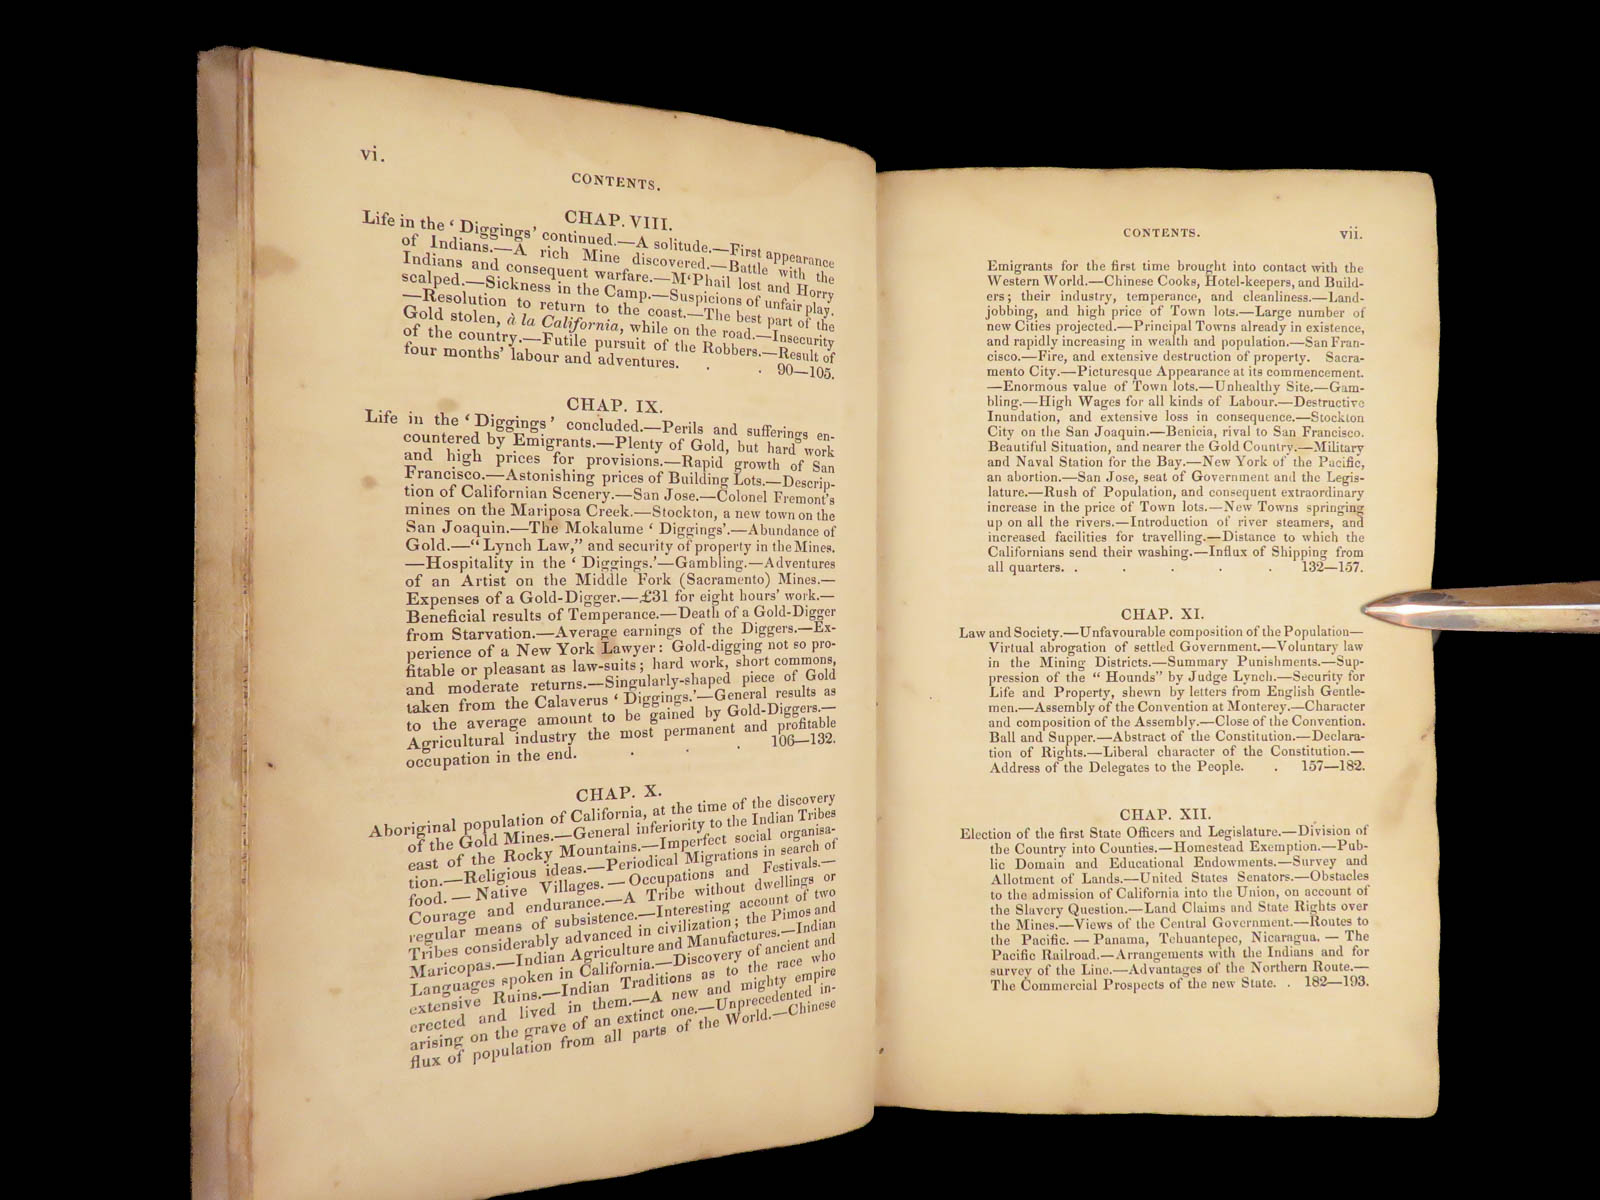 vi.
CONTENTS.
CHAP. VIII.
Life in the ‘ Diggings’ continued.—A solitude.—First appearance
of Indians.—A rich Mine discovered.—Battle with the
Indians and consequent warfare.—M‘Phail lost and Horry
scalped.—Sickness in the Camp.—Suspicions of unfair play.
—Resolution to return to the coast.—The best part of the
Gold stolen, à la California, while on the road.—Insecurity
of the country.—Futile pursuit of the Robbers.—Result of
four months’ labour and adventures. . . 90—105.
CHAP. IX.
Life in the ‘ Diggings’ concluded.—Perils and sufferings en-
countered by Emigrants.—Plenty of Gold, but hard work
and high prices for provisions.—Rapid growth of San
Francisco.—Astonishing prices of Building Lots.—Descrip-
tion of Californian Scenery.—San Jose.—Colonel Fremont’s
mines on the Mariposa Creek.—Stockton, a new town on the
San Joaquin.—The Mokalume ‘ Diggings’.—Abundance of
Gold.—“ Lynch Law,” and security of property in the Mines.
—Hospitality in the ‘ Diggings.’—Gambling.—Adventures
of an Artist on the Middle Fork (Sacramento) Mines.—
Expenses of a Gold-Digger.—£31 for eight hours’ work.—
Beneficial results of Temperance.—Death of a Gold-Digger
from Starvation.—Average earnings of the Diggers.—Ex-
perience of a New York Lawyer: Gold-digging not so pro-
fitable or pleasant as law-suits; hard work, short commons,
and moderate returns.—Singularly-shaped piece of Gold
taken from the Calaverus ‘ Diggings.’—General results as
to the average amount to be gained by Gold-Diggers.—
Agricultural industry the most permanent and profitable
occupation in the end. . . . 106—132.
CHAP. X.
Aboriginal population of California, at the time of the discovery
of the Gold Mines.—General inferiority to the Indian Tribes
east of the Rocky Mountains.—Imperfect social organisa-
tion.—Religious ideas.—Periodical Migrations in search of
food. — Native Villages. — Occupations and Festivals.—
Courage and endurance.—A Tribe without dwellings or
regular means of subsistence.—Interesting account of two
Tribes considerably advanced in civilization; the Pimos and
Maricopas.—Indian Agriculture and Manufactures.—Indian
Languages spoken in California.—Discovery of ancient and
extensive Ruins.—Indian Traditions as to the race who
erected and lived in them.—A new and mighty empire
arising on the grave of an extinct one.—Unprecedented in-
flux of population from all parts of the World.—Chinese
CONTENTS. vii.
Emigrants for the first time brought into contact with the
Western World.—Chinese Cooks, Hotel-keepers, and Build-
ers; their industry, temperance, and cleanliness.—Land-
jobbing, and high price of Town lots.—Large number of
new Cities projected.—Principal Towns already in existence,
and rapidly increasing in wealth and population.—San Fran-
cisco.—Fire, and extensive destruction of property. Sacra-
mento City.—Picturesque Appearance at its commencement.
—Enormous value of Town lots.—Unhealthy Site.—Gam-
bling.—High Wages for all kinds of Labour.—Destructive
Inundation, and extensive loss in consequence.—Stockton
City on the San Joaquin.—Benicia, rival to San Francisco.
Beautiful Situation, and nearer the Gold Country.—Military
and Naval Station for the Bay.—New York of the Pacific,
an abortion.—San Jose, seat of Government and the Legis-
lature.—Rush of Population, and consequent extraordinary
increase in the price of Town lots.—New Towns springing
up on all the rivers.—Introduction of river steamers, and
increased facilities for travelling.—Distance to which the
Californians send their washing.—Influx of Shipping from
all quarters. . . . . . 132—157.
CHAP. XI.
Law and Society.—Unfavourable composition of the Population—
Virtual abrogation of settled Government.—Voluntary law
in the Mining Districts.—Summary Punishments.—Sup-
pression of the “ Hounds” by Judge Lynch.—Security for
Life and Property, shewn by letters from English Gentle-
men.—Assembly of the Convention at Monterey.—Character
and composition of the Assembly.—Close of the Convention.
Ball and Supper.—Abstract of the Constitution.—Declara-
tion of Rights.—Liberal character of the Constitution.—
Address of the Delegates to the People. . 157—182.
CHAP. XII.
Election of the first State Officers and Legislature.—Division of
the Country into Counties.—Homestead Exemption.—Pub-
lic Domain and Educational Endowments.—Survey and
Allotment of Lands.—United States Senators.—Obstacles
to the admission of California into the Union, on account of
the Slavery Question.—Land Claims and State Rights over
the Mines.—Views of the Central Government.—Routes to
the Pacific. — Panama, Tehuantepec, Nicaragua. — The
Pacific Railroad.—Arrangements with the Indians and for
survey of the Line.—Advantages of the Northern Route.—
The Commercial Prospects of the new State. . 182—193.